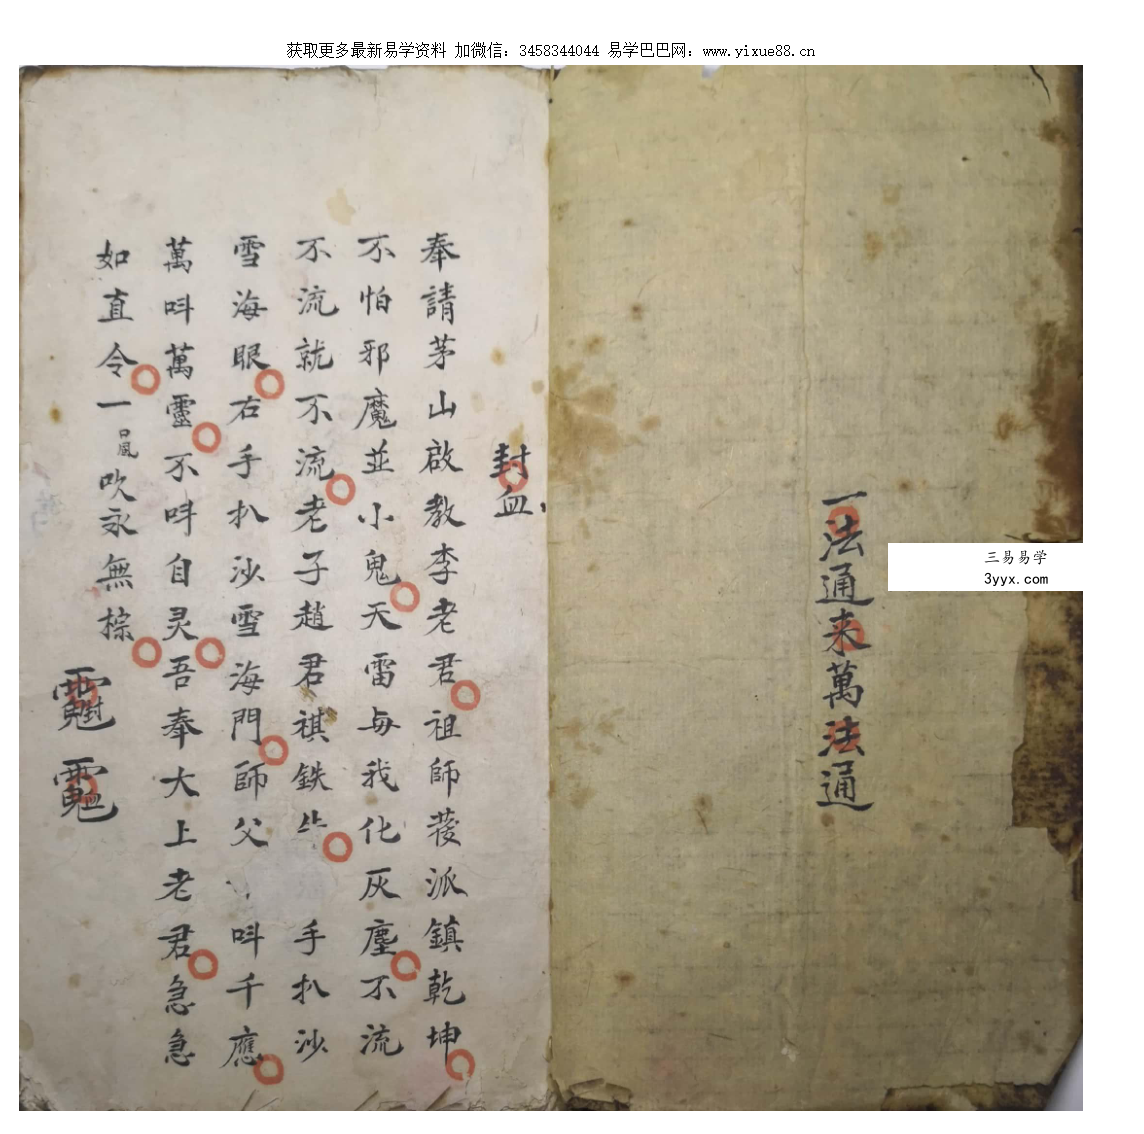 获取更多最新易学资料 加微信：3458344044 易学巴巴网：www.yixue88.cn
三易易学
3yyx.com
一法通来萬法通
封血
奉請茅山啟教李老君祖師茭派鎮乾坤
不怕邪魔並小鬼天雷每我化灰塵不流
不流就不流老子趙君祺鉄 手扒沙
雪海眼右手扒沙雪海門師父 呌千應
萬呌萬靈不呌自灵吾奉大上老君急急
如直令一口風吹永無棕